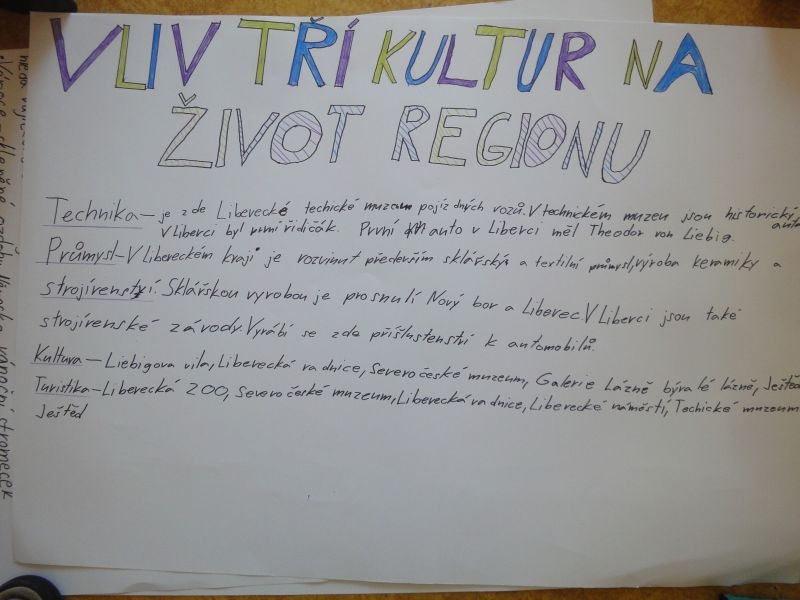 VLIV TŘÍ KULTUR NA
ŽIVOT REGIONU
Technika – je zde Liberecké techické muzeum pojízdných vozů. V technickém muzeu jsou historický auta
V Liberci byl první řidičák. První auto v Liberci měl Theodor von Liebig.
Průmysl – V Libereckém kraji je rozvinut především sklářský a textilní průmysl, výroba keramiky a
strojírenství. Sklářskou výrobou je prosnulí Nový bor a Liberec V Liberci jsou také
strojírenské závody. Vyrábí se zde příslustenství k automobilů.
Kultura – Liebigova vila, Liberecká radnice, Severočeské muzeum, Galerie Lázně bývalé lázně, Ještěd
Turistika – Liberecká ZOO, Severočeské muzeum, Liberecká radnice, Liberecké náměstí, Techické muzeum
Ještěd
Vánoce - skleněné ozdoby vánoční stromeček